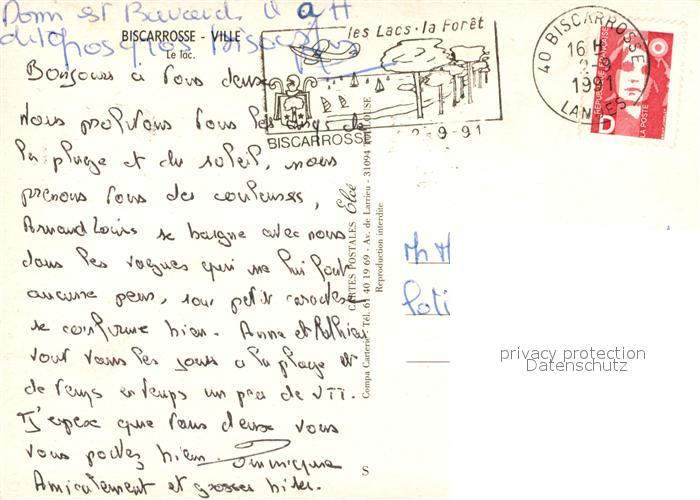 BISCARROSSE - VILLE
Le lac.
les Lacs · la Forêt
BISCARROSSE
2-9-91
40 BISCARROSSE
16 H
2-9
1991
LANDES
REPUBLIQUE FRANCAISE
D
LA POSTE
Bonjours à vous deux
Nous profitons tous les jours de
la plage et du soleil, nous
prenons tous des couleurs,
Arnaud Louis se baigne avec nous
dans les vagues qui ne lui font
aucune peur, son petit caractère
se confirme bien. Anne et Mathieu
vont tous les jours a la plage et
de temps en temps un peu de VTT.
J'espère que vous deux vous
vous portez bien
Amicalement et grosses bises.
CARTES POSTALES Cloé
Compa Carterie - Tél. 61 40 19 69 - Av. de Larrieu - 31094 TOULOUSE
Reproduction interdite
S
privacy protection
Datenschutz